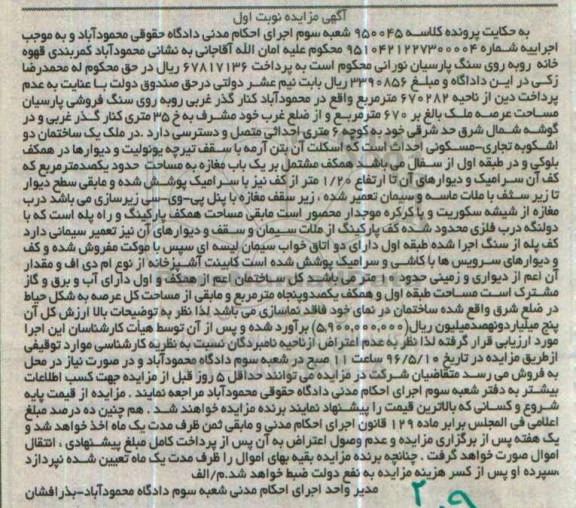 آگهی مزایده نوبت اول
به حکایت پرونده کلاسه ۹۵۰۰۴۵ شعبه سوم اجرای احکام مدنی دادگاه حقوقی محمودآباد و به موجب
اجراییه شماره ۹۵۱۰۴۲۱۲۲۷۳۰۰۰۰۴ محکوم علیه امان الله آقاجانی به نشانی محمودآباد کمربندی قهوه
خانه روبه روی سنگ پارسیان نورانی محکوم است به پرداخت ۶۷۸۱۷۱۳۶ ریال در حق محکوم له محمدرضا
زکی در این داداگاه و مبلغ ۳۳۹۰۸۵۶ ریال بابت نیم عشر دولتی درحق صندوق دولت با عنایت به عدم
پرداخت دین از ناحیه ۶۷۰۲۸۲ مترمربع واقع در محمودآباد کنار گذر غربی روبه روی سنگ فروشی پارسیان
مساحت عرصه ملک بالغ بر ۶۷۰ مترمربع و از ضلع غرب خود مشرف به خ ۳۵ متری کنار گذر غربی و در
گوشه شمال شرق حد شرقی خود به کوچه ۶ متری احداثی متصل و دسترسی دارد .در ملک یک ساختمان دو
اشکوبه تجاری-مسکونی احداث است که اسکلت آن بتن آرمه با سقف تیرچه یونولیت و دیوارها در همکف
بلوکی و در طبقه اول از سفال می باشد همکف مشتمل بر یک باب مغازه به مساحت حدود یکصدمترمربع که
کف آن سرامیک و دیوارهای آن تا ارتفاع ۱/۲۰ متر از کف نیز با سرامیک پوشش شده و مابقی سطح دیوار
تا زیر سقف با ملات ماسه و سیمان تعمیر شده ، زیر سقف مغازه با پنل پی-وی-سی زیرسازی می باشد درب
مغازه از شیشه سکوریت و با کرکره موجدار محصور است مابقی مساحت همکف پارکینگ و راه پله است که با
دولنگه درب فلزی محدود شده کف پارکینگ از ملات سیمان و سقف و دیوارهای آن نیز تعمیر سیمانی دارد
کف پله از سنگ اجرا شده طبقه اول دارای دو اتاق خواب سیمان لیسه ای سپس با موکت مفروش شده و کف
و دیوارهای سرویس ها با کاشی و سرامیک پوشش شده است کابینت آشپزخانه از نوع ام دی اف و مقدار
آن اعم از دیواری و زمینی حدود ۱۰ متر می باشد کل ساختمان اعم از همکف و اول دارای آب و برق و گاز
مشترک است مساحت طبقه اول و همکف یکصدوپنجاه مترمربع و مابقی از مساحت کل عرصه به شکل حیاط
در ضلع شرق واقع شده ساختمان در نمای خود فاقد نماسازی می باشد لذا نظر به توضیحات بالا ارزش کل آن
پنج میلیاردونهصدمیلیون ریال(۵,۹۰۰,۰۰۰,۰۰۰) برآورد شده و پس از آن توسط هیأت کارشناسان این اجرا
مورد ارزیابی قرار گرفته لذا نظر به عدم اعتراض ازناحیه نامبردگان نسبت به نظریه کارشناسی موارد توقیفی
ازطریق مزایده در تاریخ ۹۶/۵/۱۰ ساعت ۱۱ صبح در شعبه سوم دادگاه محمودآباد و در صورت نیاز در محل
به فروش می رسد متقاضیان شرکت در مزایده می توانند حداقل ۵ روز قبل از مزایده جهت کسب اطلاعات
بیشتر به دفتر شعبه سوم اجرای احکام مدنی دادگاه حقوقی محمودآباد مراجعه نمایند . مزایده از قیمت پایه
شروع و کسانی که بالاترین قیمت را پیشنهاد نمایند برنده مزایده خواهند شد . هم چنین ده درصد مبلغ
اعلامی فی المجلس برابر ماده ۱۲۹ قانون اجرای احکام مدنی و مابقی ثمن ظرف مدت یک ماه اخذ خواهد شد و
یک هفته پس از برگزاری مزایده و عدم وصول اعتراض به آن پس از پرداخت کامل مبلغ پیشنهادی ، انتقال
اموال صورت خواهد گرفت . چنانچه برنده مزایده بقیه بهای اموال را ظرف مدت یک ماه تعیین شده نپردازد
،سپرده او پس از کسر هزینه مزایده به نفع دولت ضبط خواهد شد.م/الف
مدیر واحد اجرای احکام مدنی شعبه سوم دادگاه محمودآباد-بذرافشان
۲۰۹